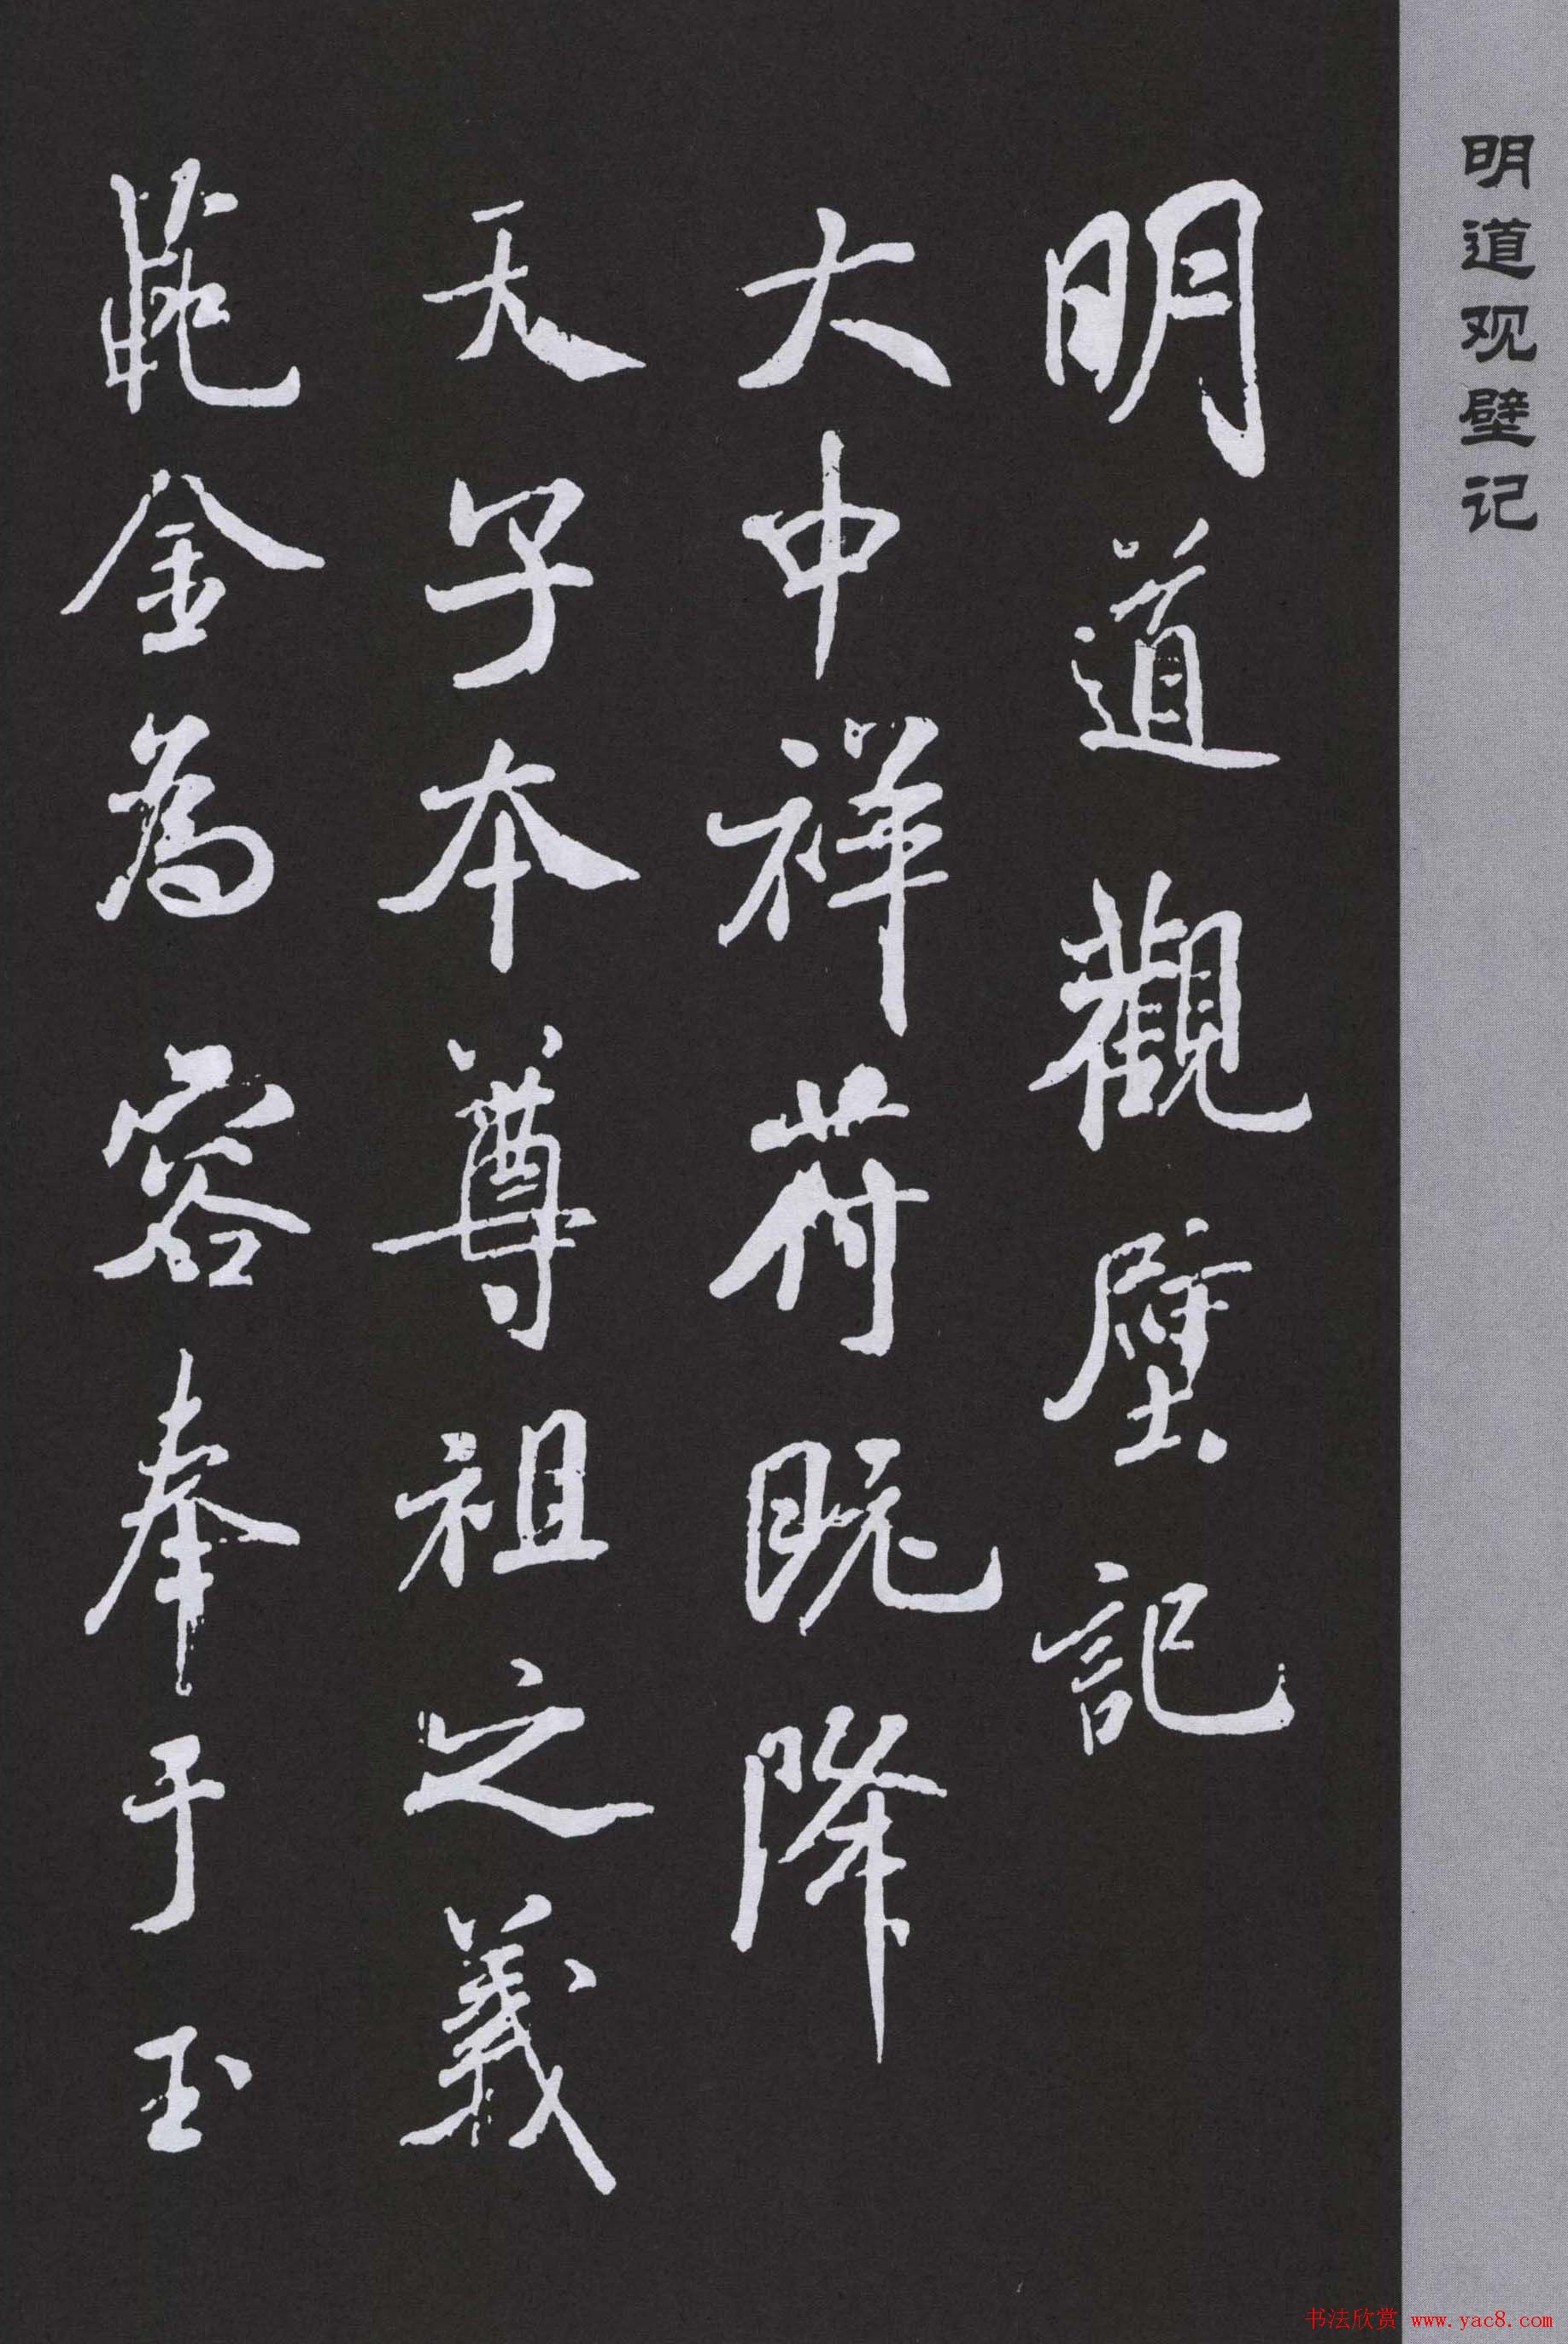 明道观壁记
明道觀壁記
大中祥苻既降
天子本尊祖之義
範金為容奉于玉
书法欣赏 www.yac8.com